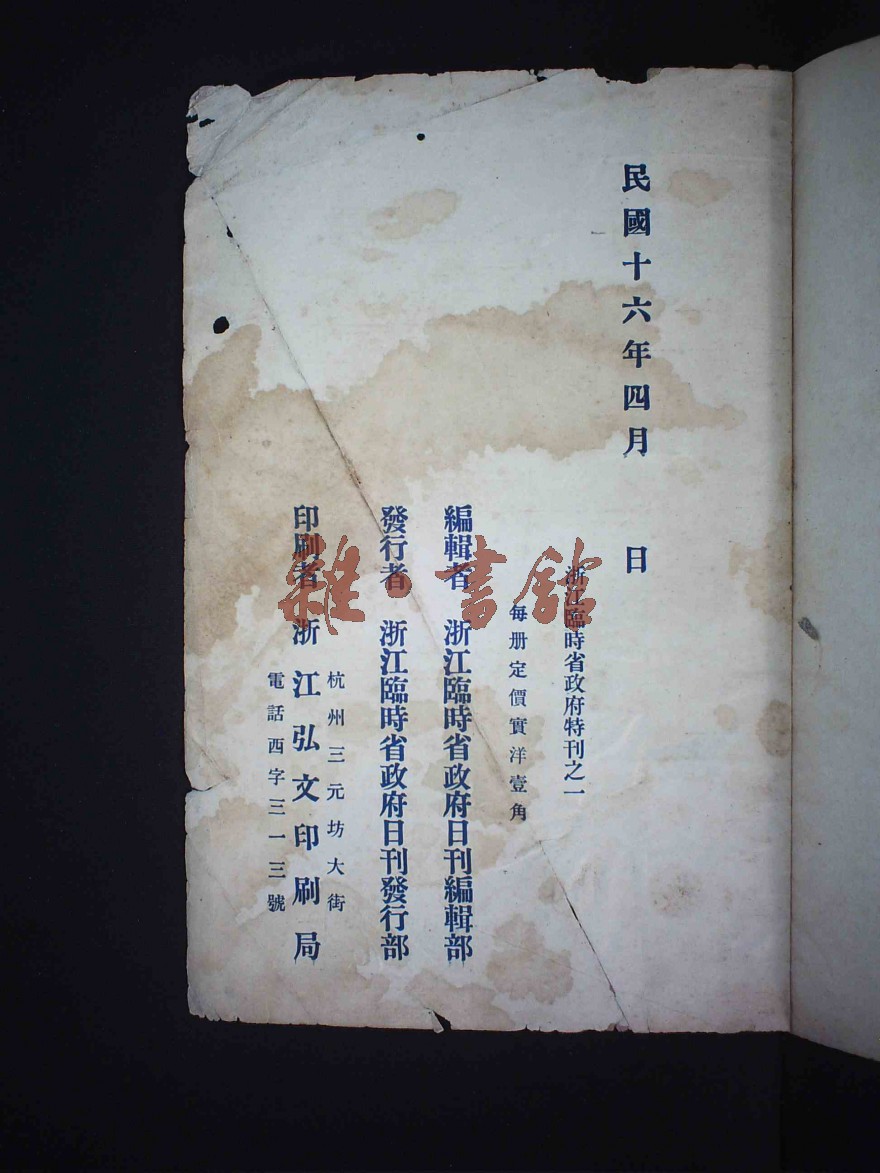 民國十六年四月　日
浙江臨時省政府特刊之一
每册定價實洋壹角
編輯者　浙江臨時省政府日刊編輯部
發行者　浙江臨時省政府日刊發行部
杭州三元坊大街
印刷者　浙江弘文印刷局
電話西字三一三號
雜·書館